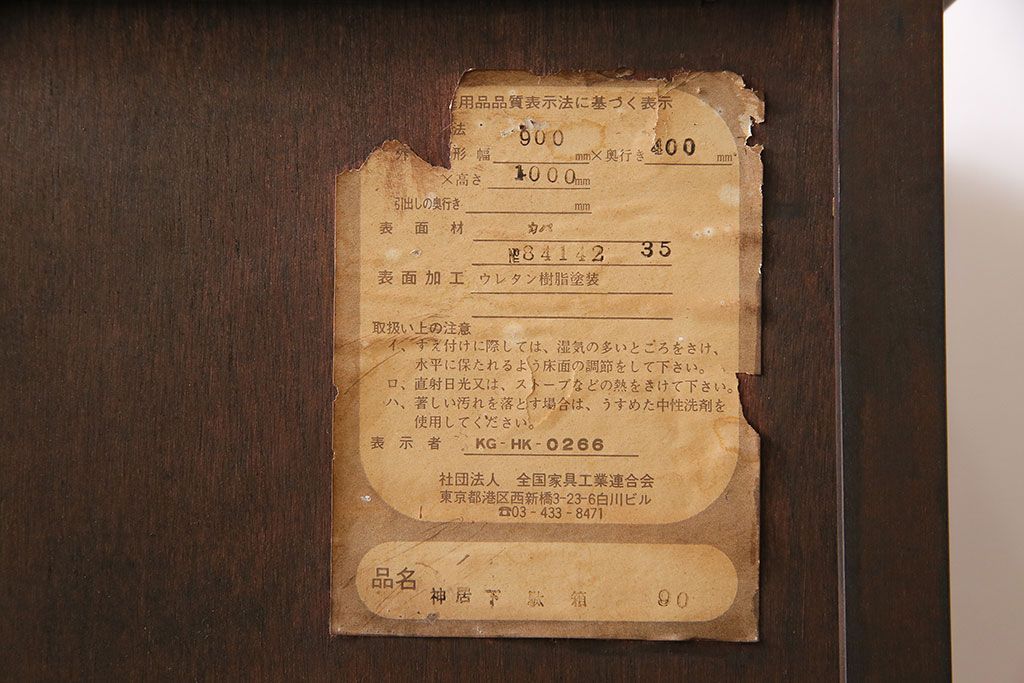 用品品質表示法に基づく表示
法
外形 幅 900 mm×奥行き 400 mm
×高さ 1000 mm
引出しの奥行き mm
表面材 カバ
№84142 35
表面加工 ウレタン樹脂塗装
取扱い上の注意
イ、すえ付けに際しては、湿気の多いところをさけ、
水平に保たれるよう床面の調節をして下さい。
ロ、直射日光又は、ストーブなどの熱をさけて下さい。
ハ、著しい汚れを落とす場合は、うすめた中性洗剤を
使用してください。
表示者 KG-HK-0266
社団法人 全国家具工業連合会
東京都港区西新橋3-23-6白川ビル
☎03-433-8471
品名
神居下駄箱 90